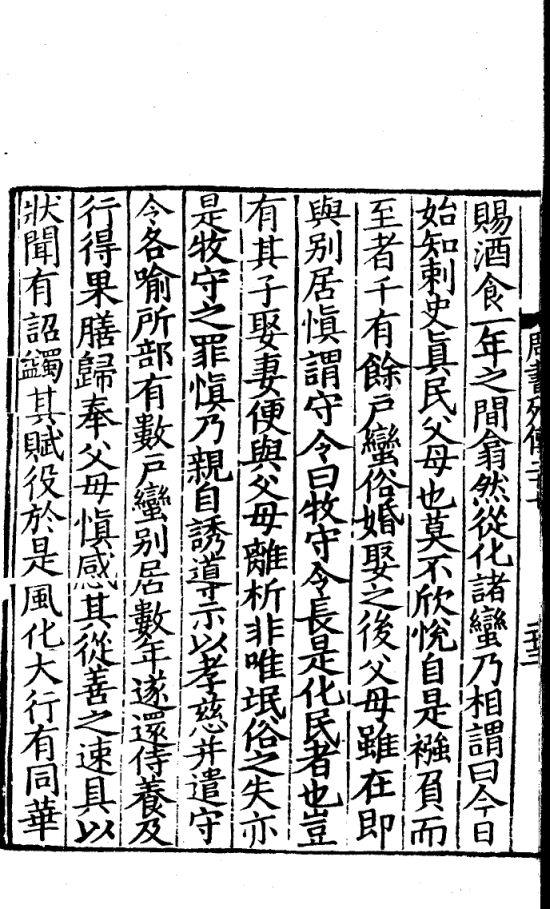 賜酒食一年之間翕然從化諸蠻乃相謂曰今日
始知刺史真民父母也莫不欣悅自是襁負而
至者千有餘戶蠻俗婚娶之後父母雖在即
與别居慎謂守令曰牧守令長是化民者也豈
有其子娶妻便與父母離析非唯氓俗之失亦
是牧守之罪慎乃親自誘導示以孝慈并遣守
令各喻所部有數戶蠻别居數年遂還侍養及
行得果膳歸奉父母慎感其從善之速具以
狀聞有詔蠲其賦役於是風化大行有同華